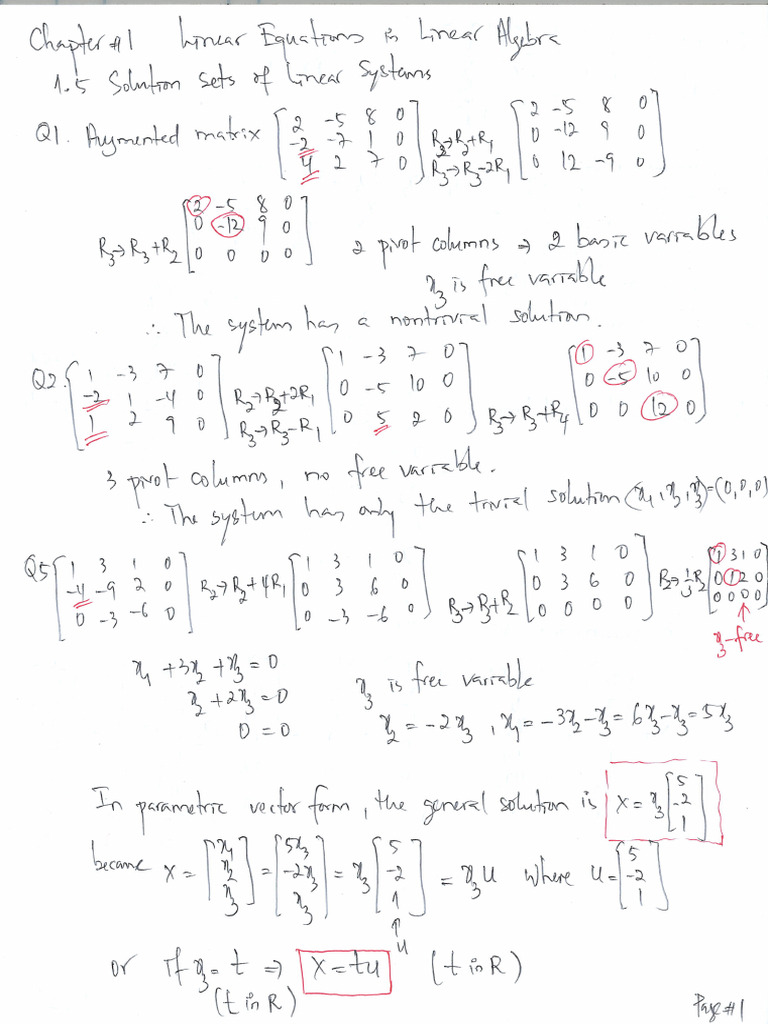 Chapter #1 Linear Equations in Linear Algebra
1.5 Solution sets of Linear Systems
Q1. Augmented matrix [2 -5 8 0; -2 -7 1 0; 4 2 7 0] R2→R2+R1 R3→R3-2R1 [2 -5 8 0; 0 -12 9 0; 0 12 -9 0]
R3→R3+R2 [2 -5 8 0; 0 -12 9 0; 0 0 0 0] 2 pivot columns ⇒ 2 basic variables
x3 is free variable
∴ The system has a nontrivial solution.
Q2. [1 -3 7 0; -2 1 -4 0; 1 2 9 0] R2→R2+2R1 R3→R3-R1 [1 -3 7 0; 0 -5 10 0; 0 5 2 0] R3→R3+R4 [1 -3 7 0; 0 -5 10 0; 0 0 12 0]
3 pivot columns, no free variable.
∴ The system has only the trivial solution (x1, x2, x3)=(0,0,0)
Q5 [1 3 1 0; -4 -9 2 0; 0 -3 -6 0] R2→R2+4R1 [1 3 1 0; 0 3 6 0; 0 -3 -6 0] R3→R3+R2 [1 3 1 0; 0 3 6 0; 0 0 0 0] R2→1/3R2 [1 3 1 0; 0 1 2 0; 0 0 0 0]
↑
x3-free
x1 + 3x2 + x3 = 0
x2 + 2x3 = 0 x3 is free variable
0 = 0 x2 = -2x3, x1 = -3x2-x3 = 6x3-x3 = 5x3
In parametric vector form, the general solution is x = x3 [5; -2; 1]
became x = [x1; x2; x3] = [5x3; -2x3; x3] = x3 [5; -2; 1] = x3u where u = [5; -2; 1]
↑
u
or if x3 = t ⇒ x = tu (t in R)
(t in R)
Page #1